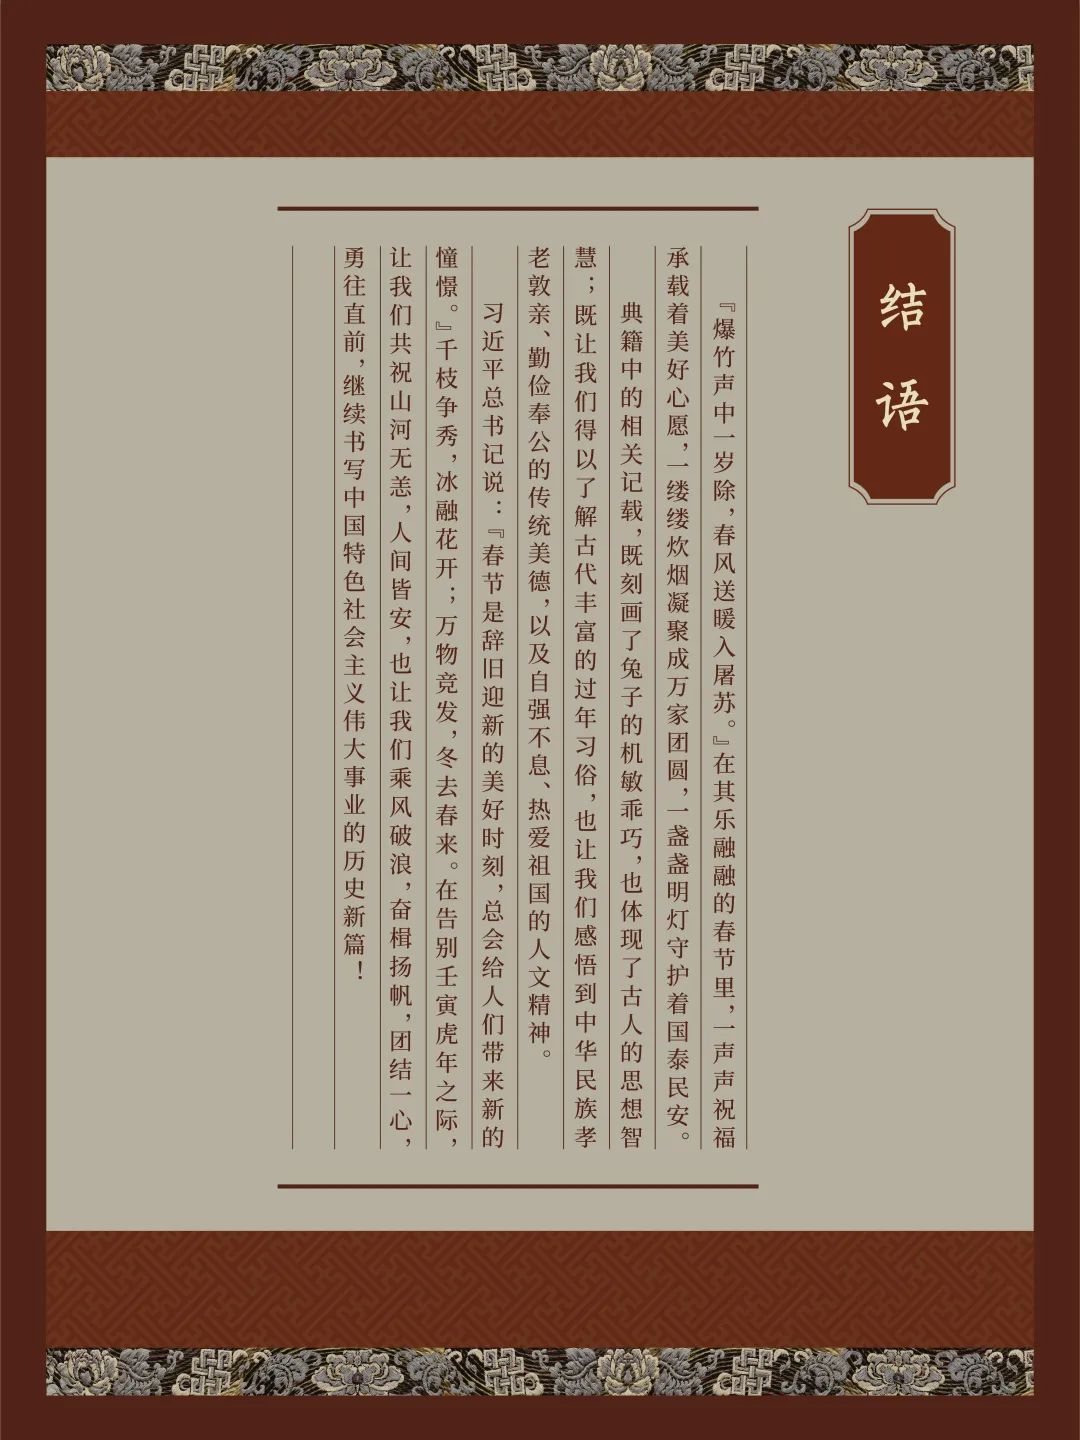 结语
『爆竹声中一岁除，春风送暖入屠苏。』在其乐融融的春节里，一声声祝福
承载着美好心愿，一缕缕炊烟凝聚成万家团圆，一盏盏明灯守护着国泰民安。
典籍中的相关记载，既刻画了兔子的机敏乖巧，也体现了古人的思想智
慧；既让我们得以了解古代丰富的过年习俗，也让我们感悟到中华民族孝
老敦亲、勤俭奉公的传统美德，以及自强不息、热爱祖国的人文精神。
习近平总书记说：『春节是辞旧迎新的美好时刻，总会给人们带来新的
憧憬。』千枝争秀，冰融花开；万物竞发，冬去春来。在告别壬寅虎年之际，
让我们共祝山河无恙，人间皆安，也让我们乘风破浪，奋楫扬帆，团结一心，
勇往直前，继续书写中国特色社会主义伟大事业的历史新篇！